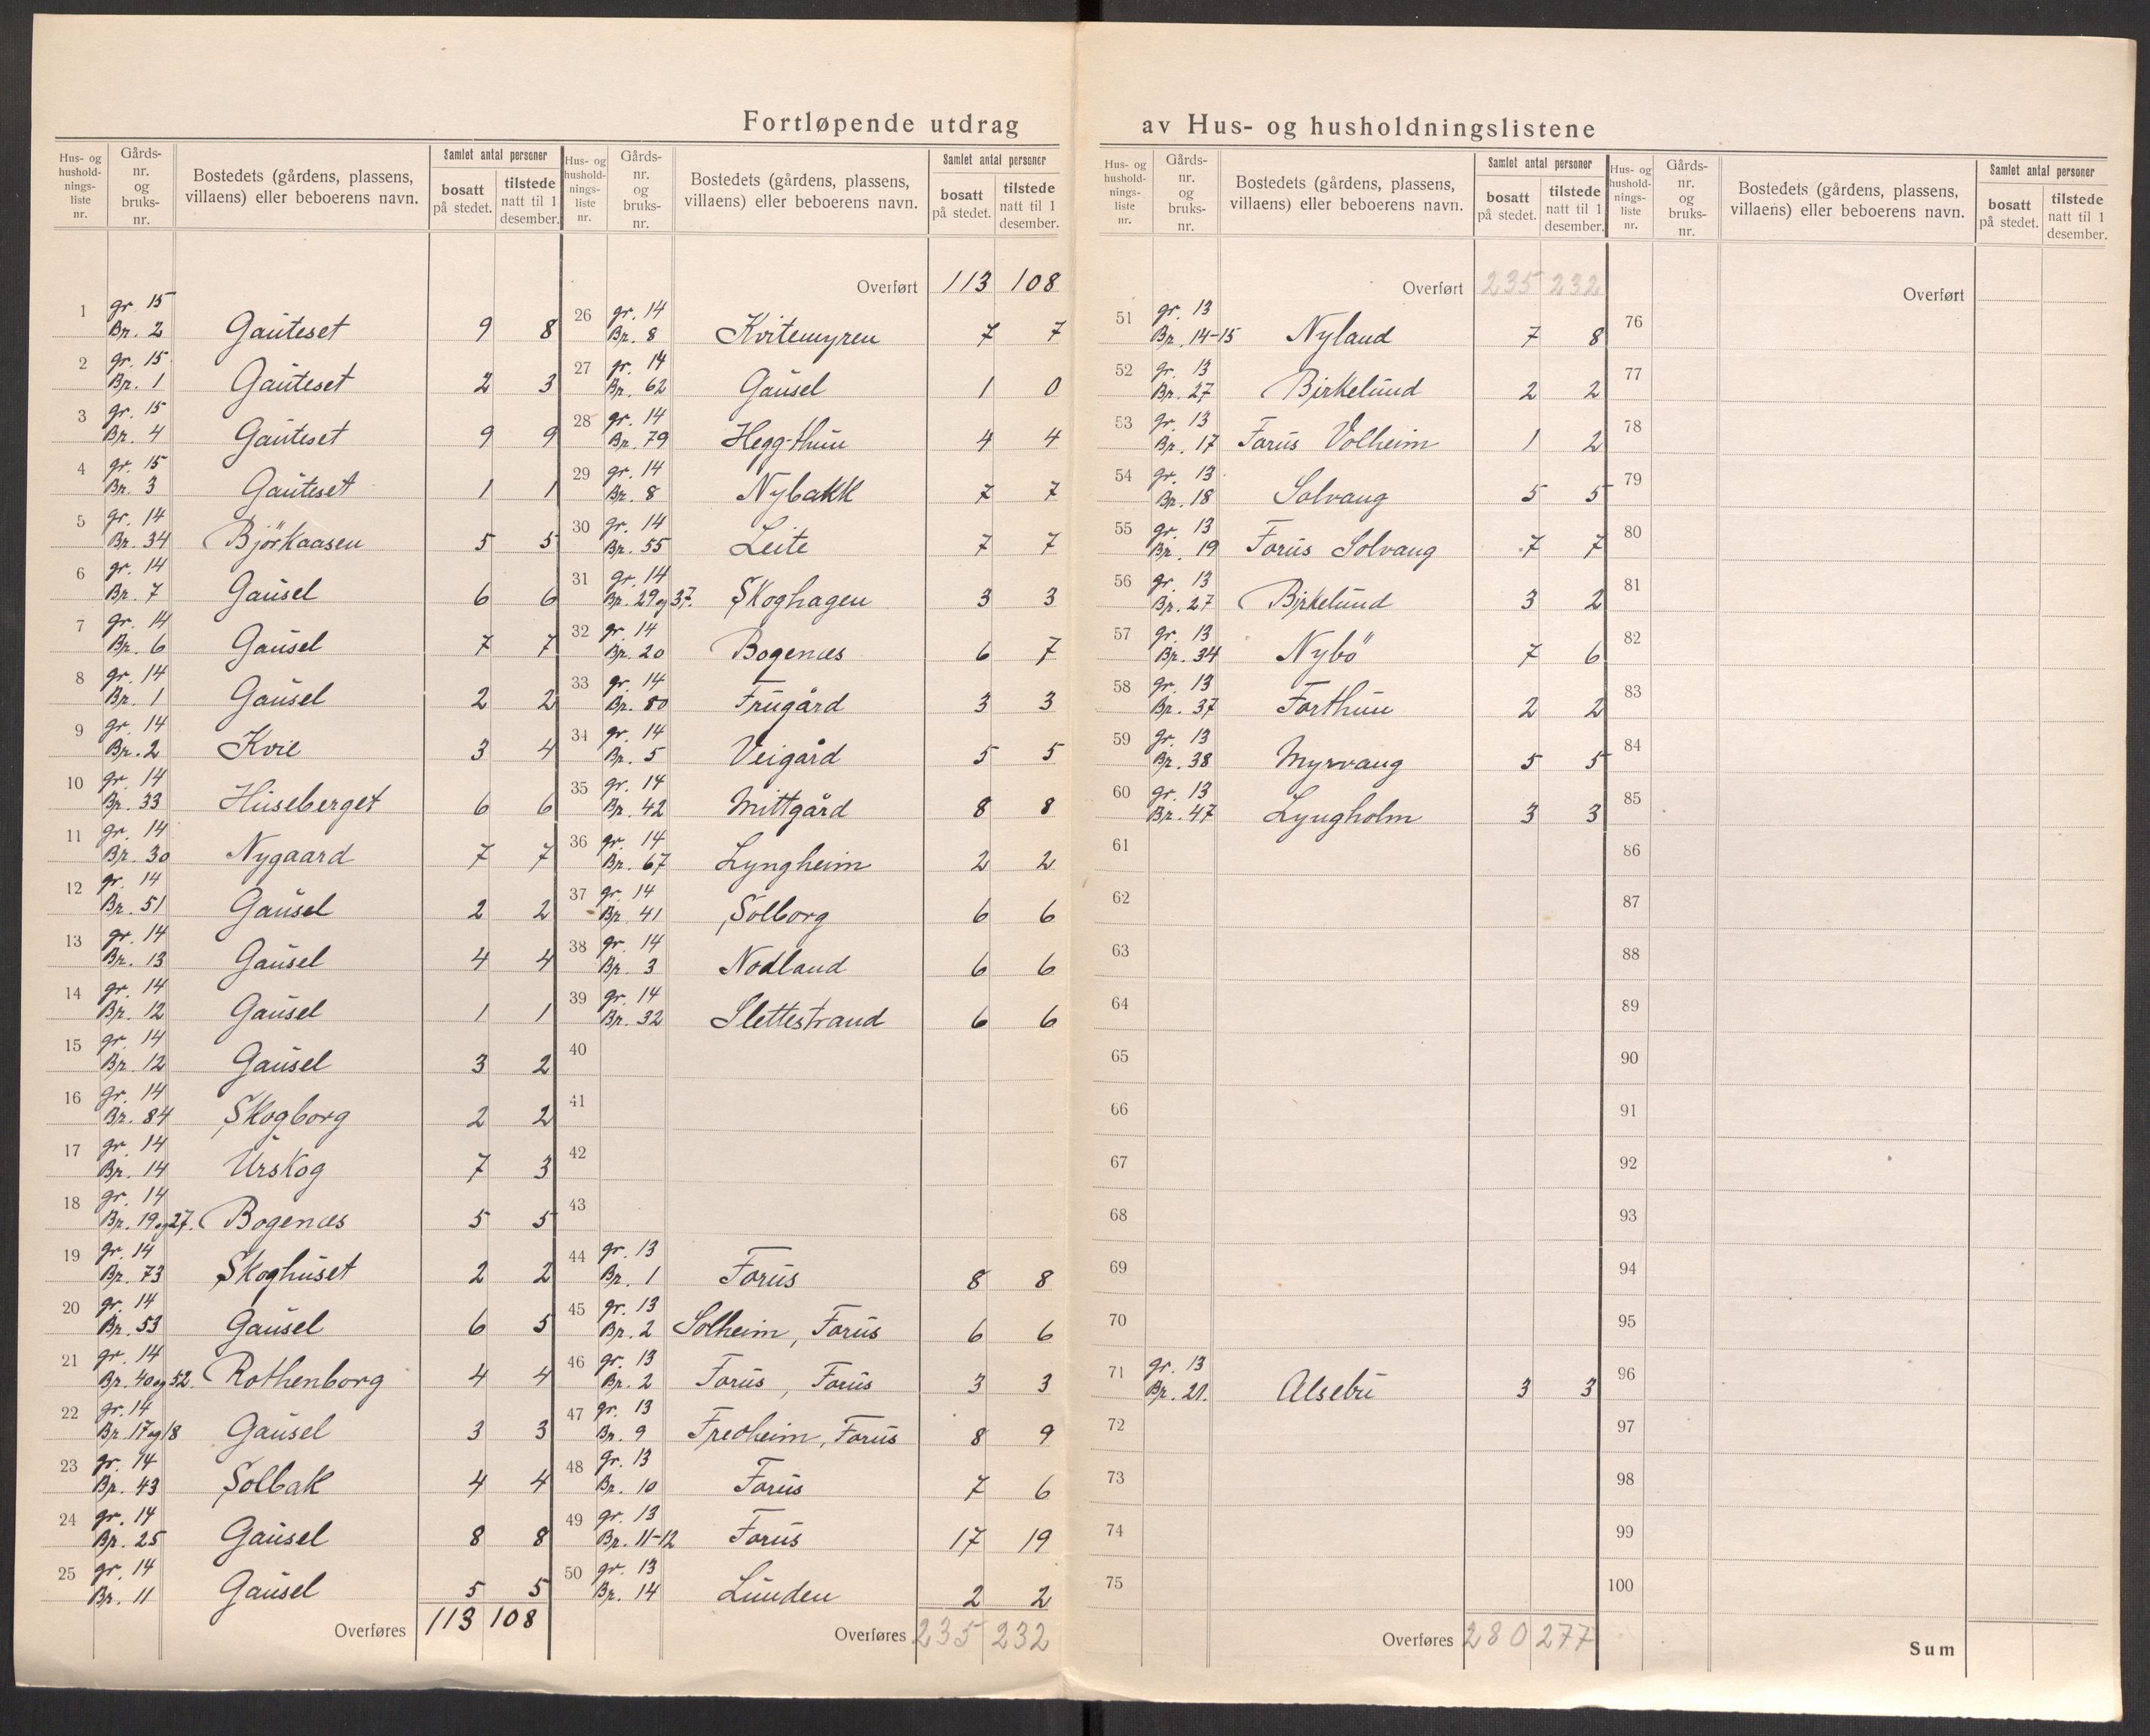 Fortløpende utdrag av Hus- og husholdningslistene
Hus- og husholdningsliste nr. | Gårds-nr. og bruks-nr. | Bostedets (gårdens, plassens, villaens) eller beboerens navn. | Samlet antal personer | bosatt på stedet. | tilstede natt til 1 desember.
1 gr. 15 Br. 2 Gauteset 9 8
2 gr. 15 Br. 1 Gauteset 2 3
3 gr. 15 Br. 4 Gauteset 9 9
4 gr. 15 Br. 3 Gauteset 1 1
5 gr. 14 Br. 34 Björkaasen 5 5
6 gr. 14 Br. 7 Gausel 6 6
7 gr. 14 Br. 6 Gausel 7 7
8 gr. 14 Br. 1 Gausel 2 2
9 gr. 14 Br. 2 Kvie 3 4
10 gr. 14 Br. 33 Huseberget 6 6
11 gr. 14 Br. 30 Nygaard 7 7
12 gr. 14 Br. 51 Gausel 2 2
13 gr. 14 Br. 13 Gausel 4 4
14 gr. 14 Br. 12 Gausel 1 1
15 gr. 14 Br. 12 Gausel 3 2
16 gr. 14 Br. 84 Skogborg 2 2
17 gr. 14 Br. 14 Urskog 7 3
18 gr. 14 Br. 19 og 27. Bogenæs 5 5
19 gr. 14 Br. 73 Skoghuset 2 2
20 gr. 14 Br. 53 Gausel 6 5
21 gr. 14 Br. 40 og 52. Rothenborg 4 4
22 gr. 14 Br. 17 og 18 Gausel 3 3
23 gr. 14 Br. 43 Solbak 4 4
24 gr. 14 Br. 25 Gausel 8 8
25 gr. 14 Br. 11 Gausel 5 5
Overføres 113 108
Hus- og husholdningsliste nr. | Gårds-nr. og bruks-nr. | Bostedets (gårdens, plassens, villaens) eller beboerens navn. | Samlet antal personer | bosatt på stedet. | tilstede natt til 1 desember.
Overført 113 108
26 gr. 14 Br. 8 Kvitemyren 7 7
27 gr. 14 Br. 62 Gausel 1 0
28 gr. 14 Br. 79 Hegg-thun 4 4
29 gr. 14 Br. 8 Nybakk 7 7
30 gr. 14 Br. 55 Leite 7 7
31 gr. 14 Br. 29 og 37. Skoghagen 3 3
32 gr. 14 Br. 20 Bogenæs 6 7
33 gr. 14 Br. 80 Frugård 3 3
34 gr. 14 Br. 5 Veigård 5 5
35 gr. 14 Br. 42 Mittgård 8 8
36 gr. 14 Br. 67 Lyngheim 2 2
37 gr. 14 Br. 41 Solborg 6 6
38 gr. 14 Br. 3 Nodland 6 6
39 gr. 14 Br. 32 Slettestrand 6 6
40
41
42
43
44 gr. 13 Br. 1 Forus 8 8
45 gr. 13 Br. 2 Solheim, Forus 6 6
46 gr. 13 Br. 2 Forus, Forus 3 3
47 gr. 13 Br. 9 Fredheim, Forus 8 9
48 gr. 13 Br. 10 Forus 7 6
49 gr. 13 Br. 11-12 Forus 17 19
50 gr. 13 Br. 14 Lunden 2 2
Overføres 235 232
Hus- og husholdningsliste nr. | Gårds-nr. og bruks-nr. | Bostedets (gårdens, plassens, villaens) eller beboerens navn. | Samlet antal personer | bosatt på stedet. | tilstede natt til 1 desember.
Overført 235 232
51 gr. 13 Br. 14-15 Nyland 7 8
52 gr. 13 Br. 27 Birkelund 2 2
53 gr. 13 Br. 17 Forus Volheim 1 2
54 gr. 13 Br. 18 Solvang 5 5
55 gr. 13 Br. 19 Forus Solvang 7 7
56 gr. 13 Br. 27 Birkelund 3 2
57 gr. 13 Br. 34 Nybö 7 6
58 gr. 13 Br. 37 Forthun 2 2
59 gr. 13 Br. 38 Myrvang 5 5
60 gr. 13 Br. 47 Lyngholm 3 3
61
62
63
64
65
66
67
68
69
70
71 gr. 13 Br. 21. Alsebu 3 3
72
73
74
75
Overføres 280 277
Hus- og husholdningsliste nr. | Gårds-nr. og bruks-nr. | Bostedets (gårdens, plassens, villaens) eller beboerens navn. | Samlet antal personer | bosatt på stedet. | tilstede natt til 1 desember.
Overført
76
77
78
79
80
81
82
83
84
85
86
87
88
89
90
91
92
93
94
95
96
97
98
99
100
Sum